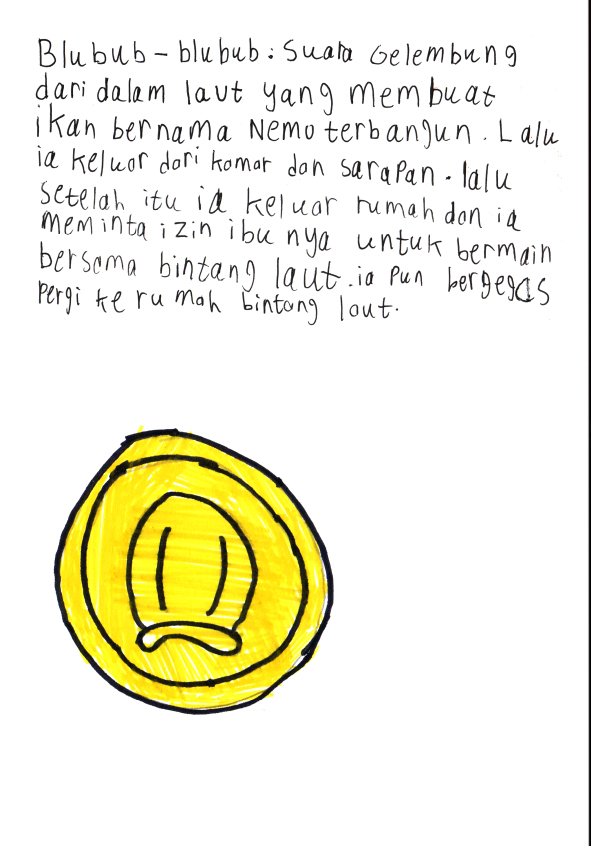 Blubub - blubub. Suara Gelembung
dari dalam laut yang membuat
ikan bernama Nemo terbangun. Lalu
ia keluar dari kamar dan sarapan. lalu
setelah itu ia keluar rumah dan ia
meminta izin ibu nya untuk bermain
bersama bintang laut. ia pun bergegas
pergi ke rumah bintang laut.